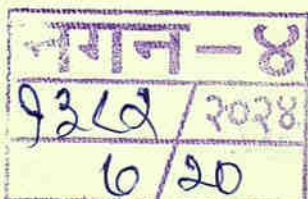 नगन - ४
१३८२ / २०२४
७ / २०